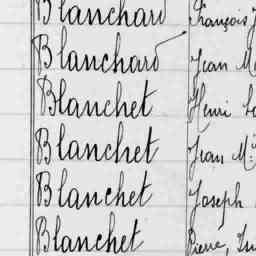 Blanchard François
Blanchard Jean
Blanchet Henri
Blanchet Jean M.
Blanchet Joseph
Blanchet Pierre,